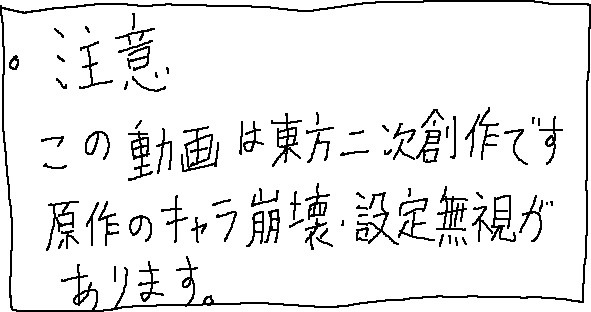 。注意
この動画は東方二次創作です
原作のキャラ崩壊・設定無視が
あります。